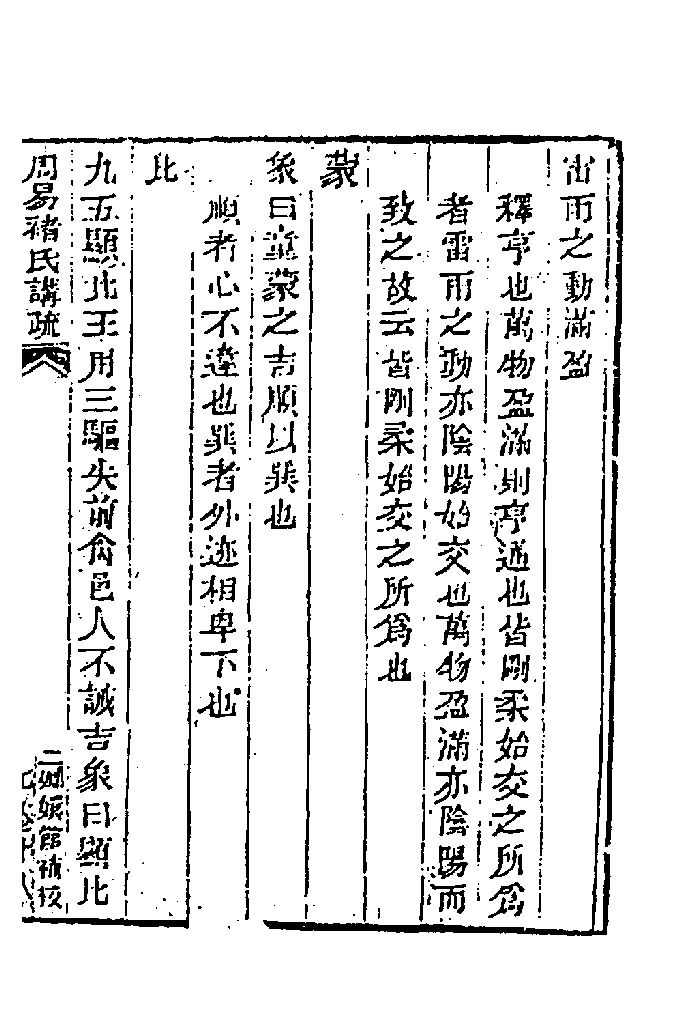 雷雨之動滿盈
釋亨也萬物盈滿則亨通也皆剛柔始交之所為
者雷雨之動亦陰陽始交也萬物盈滿亦陰陽而
致之故云皆剛柔始交之所為也
蒙
象曰童蒙之吉順以巽也
順者心不違也巽者外迹相卑下也
比
九五顯比王用三驅失前禽邑人不誡吉象曰顯比
周易褚氏講疏
二 嫏嬛館補校